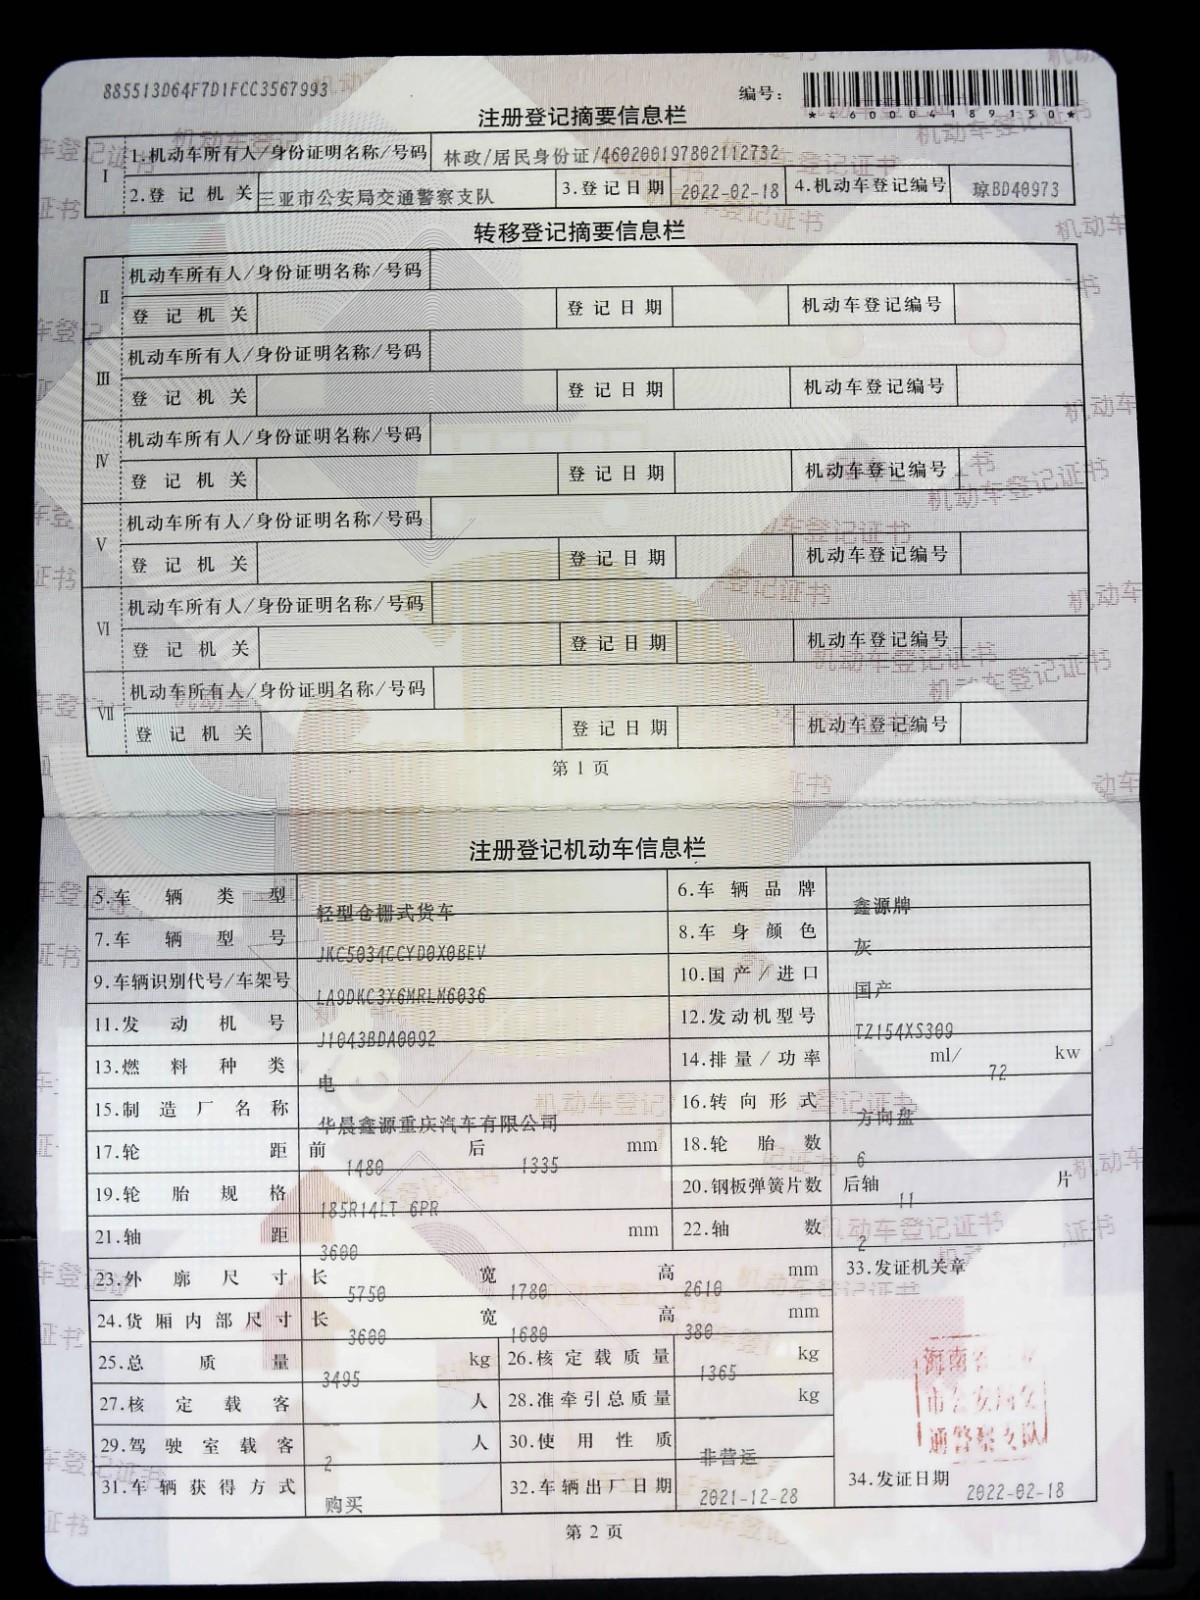 885513D64F7D1FCC3567993
编号：
*460004189150*
注册登记摘要信息栏
Ⅰ 1.机动车所有人/身份证明名称/号码 林政/居民身份证/460200197802112732
2.登记机关 三亚市公安局交通警察支队 3.登记日期 2022-02-18 4.机动车登记编号 琼BD40973
转移登记摘要信息栏
Ⅱ 机动车所有人/身份证明名称/号码
登记机关 登记日期 机动车登记编号
Ⅲ 机动车所有人/身份证明名称/号码
登记机关 登记日期 机动车登记编号
Ⅳ 机动车所有人/身份证明名称/号码
登记机关 登记日期 机动车登记编号
Ⅴ 机动车所有人/身份证明名称/号码
登记机关 登记日期 机动车登记编号
Ⅵ 机动车所有人/身份证明名称/号码
登记机关 登记日期 机动车登记编号
Ⅶ 机动车所有人/身份证明名称/号码
登记机关 登记日期 机动车登记编号
第 1 页
注册登记机动车信息栏
5.车辆类型 轻型仓栅式货车 6.车辆品牌 鑫源牌
7.车辆型号 JKC5034CCYD0X0BEV 8.车身颜色 灰
9.车辆识别代号/车架号 LA9DKC3X6MRLM6036 10.国产/进口 国产
11.发动机号 J1043BDA0092 12.发动机型号 TZ154XS309
13.燃料种类 电 14.排量/功率 ml/ 72 kw
15.制造厂名称 华晨鑫源重庆汽车有限公司 16.转向形式 方向盘
17.轮距 前 1480 后 1335 mm 18.轮胎数 6
19.轮胎规格 185R14LT 6PR 20.钢板弹簧片数 后轴 11 片
21.轴距 3600 mm 22.轴数 2
23.外廓尺寸 长 5750 宽 1780 高 2610 mm 33.发证机关章
24.货厢内部尺寸 长 3600 宽 1680 高 380 mm
25.总质量 3495 kg 26.核定载质量 1365 kg
27.核定载客 -- 人 28.准牵引总质量 -- kg
29.驾驶室载客 2 人 30.使用性质 非营运
31.车辆获得方式 购买 32.车辆出厂日期 2021-12-28 34.发证日期 2022-02-18
第 2 页